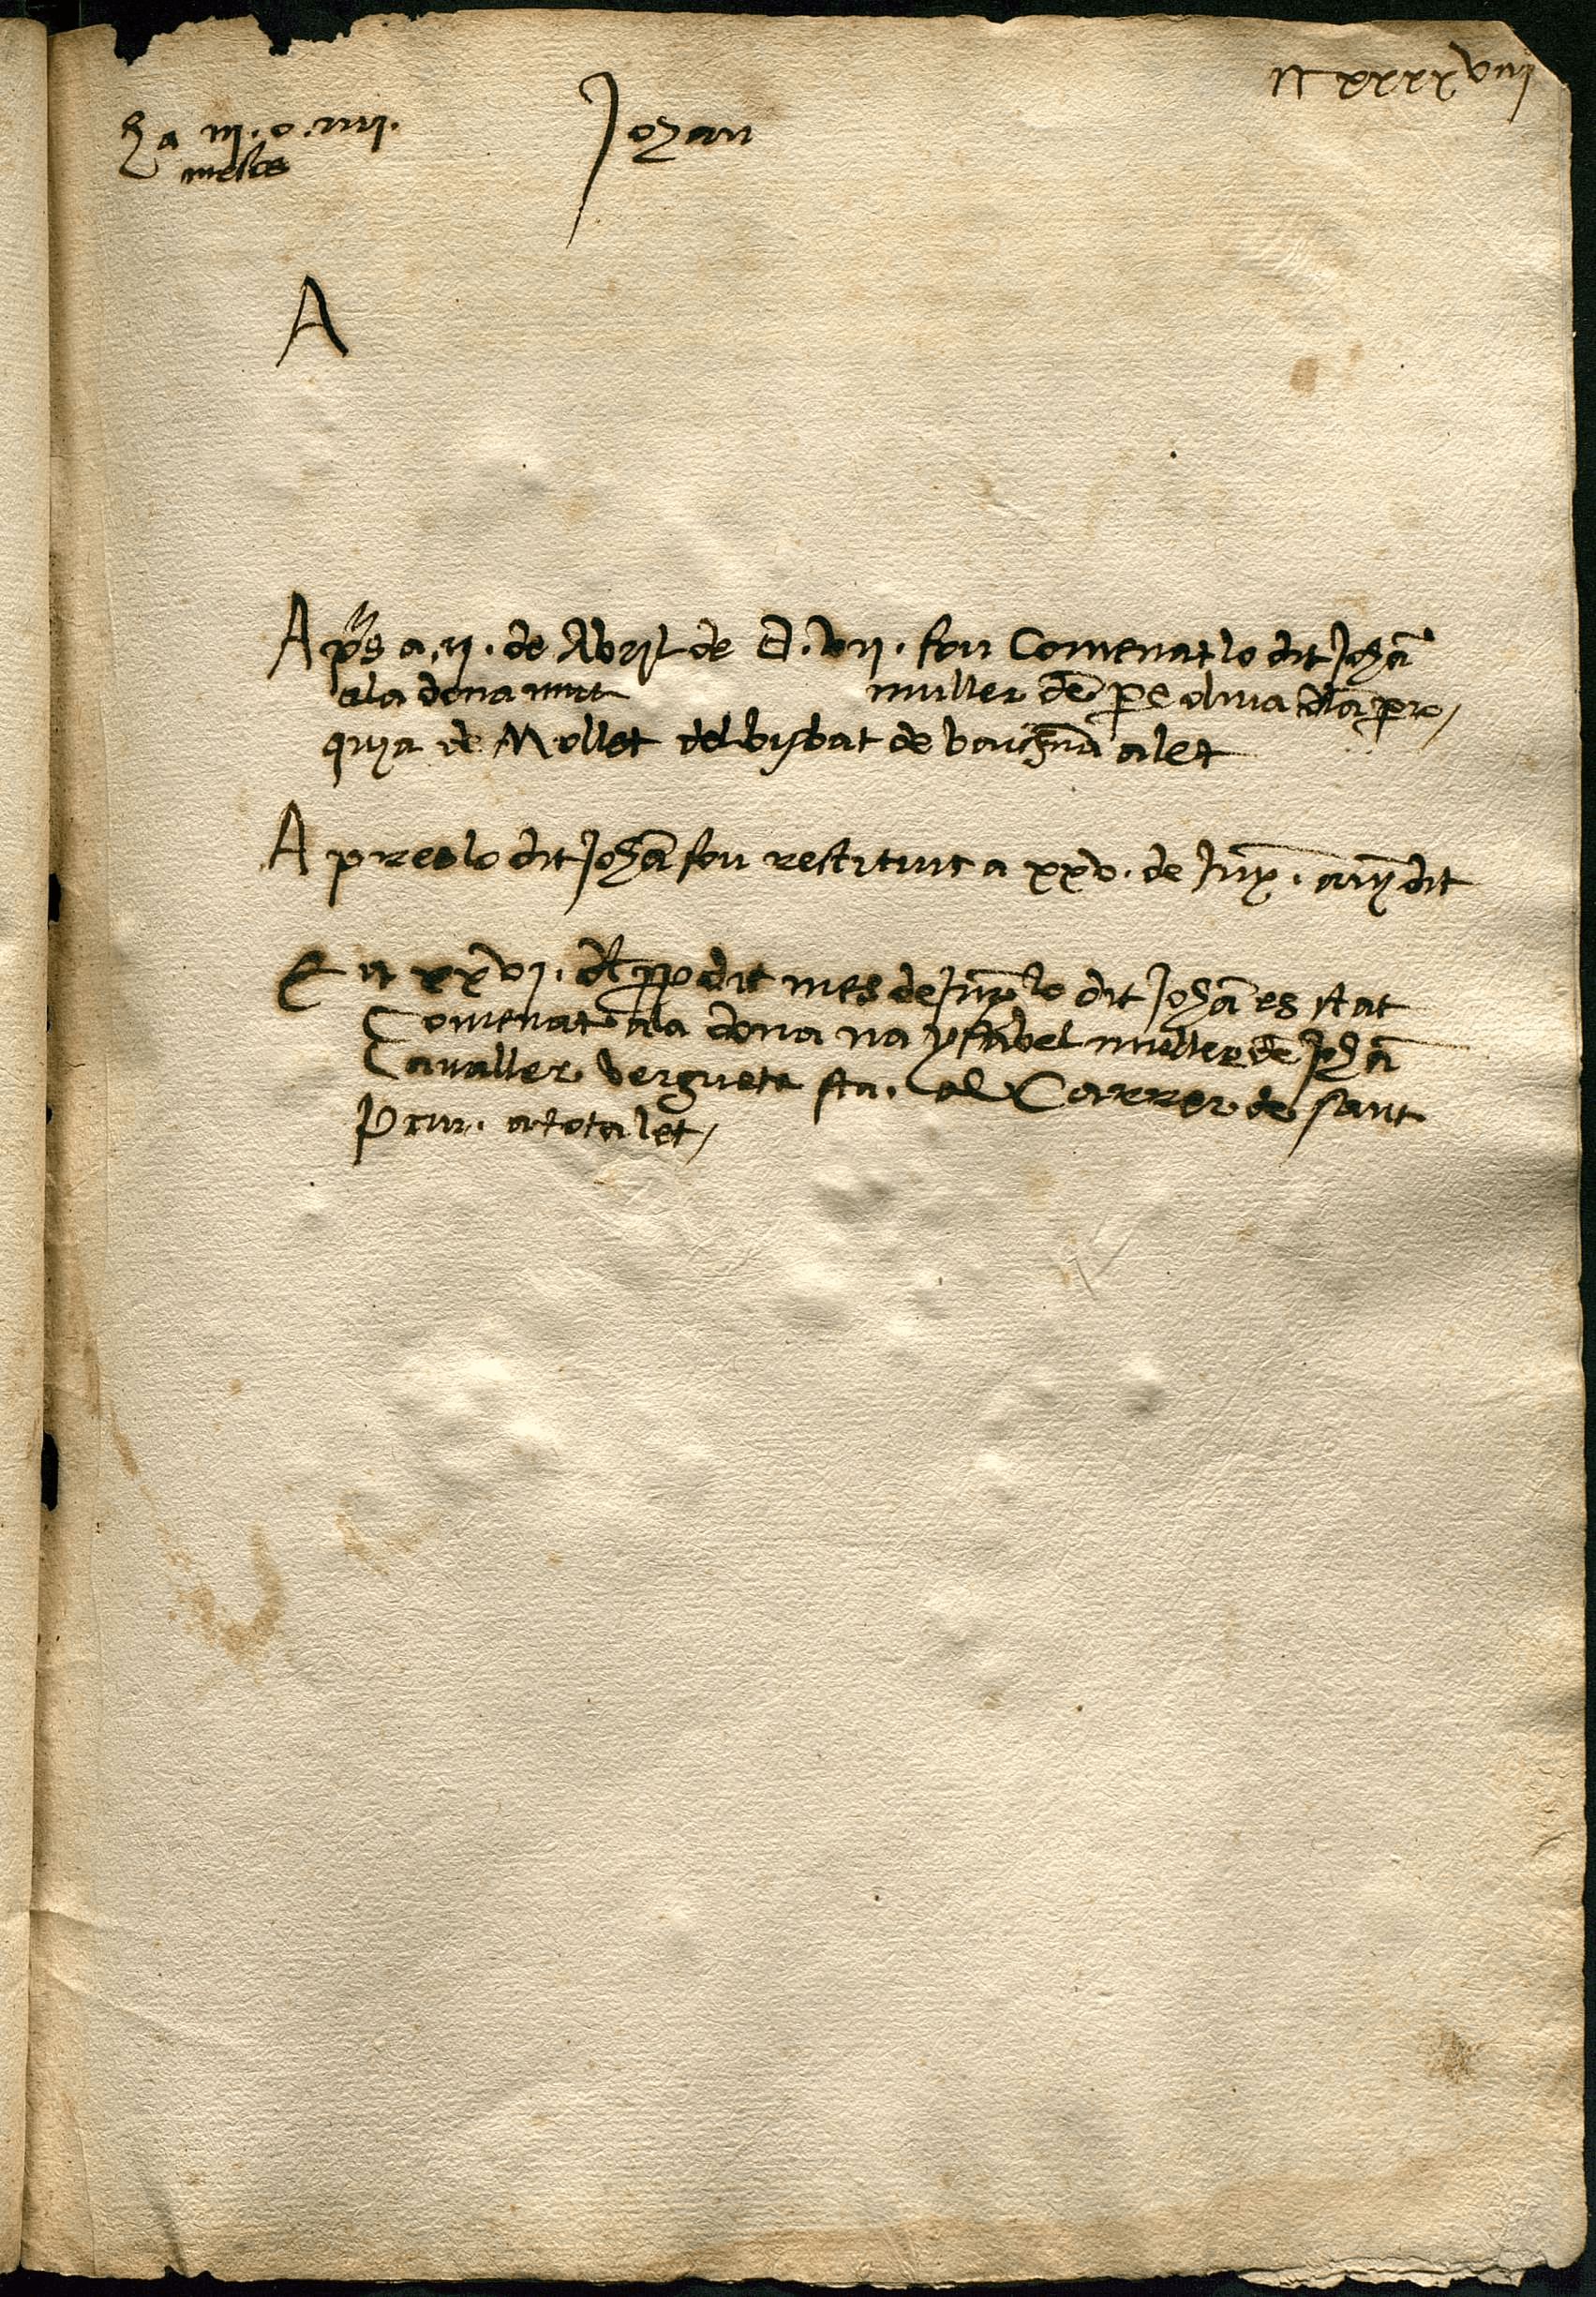 ll xxxxviiij
ha iij. o. iiij.
mesos
Johan
A
Aps a .ij. de Abril de D. vij. fou Comenat lo dit Johā
ala dona muller dē pe oliua dla pro/
quja de Mollet del bisbat de barchnā a let
Apres lo dit Johā fou restituit a xxv. de Juny. āny dit
E a xxvj. dl ppdit mes de Juny lo dit Johā es stat
Comenat ala dona na ysabel muller dē Johā
Cavaller vergueta sta. al Carrer de sant
Pcur. a tota let/